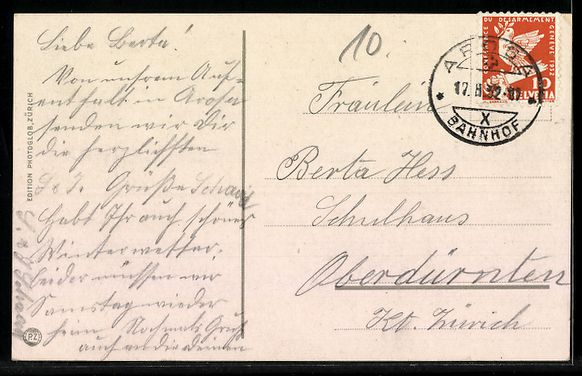 Liebe Berta!
Von unsrem Auf-
enthalt in Arosa
senden wir Dir
die herzlichsten
Grüße
Habt Ihr auch schönes
Winterwetter.
Leider müssen wir
Samstag wieder
heim. Nochmals Gruß
auch an die Deinen
EDITION PHOTOGLOB, ZÜRICH
PZ
10
CONFERENCE DU DESARMEMENT GENÈVE 1932
10
HELVETIA
AROSA
17.II.32
X
BAHNHOF
Fräulein
Berta Hess
Schulhaus
Oberdürnten
Kt. Zürich